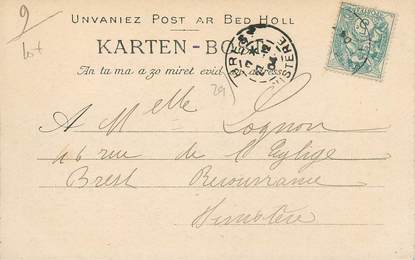 9
Unvaniez Post ar Bed Holl
lot
KARTEN-BO
An tu ma a zo miret evid an adress
29
A Melle Lognon
46 rue de l'Eglige
Brest Recouvrance
Finistère